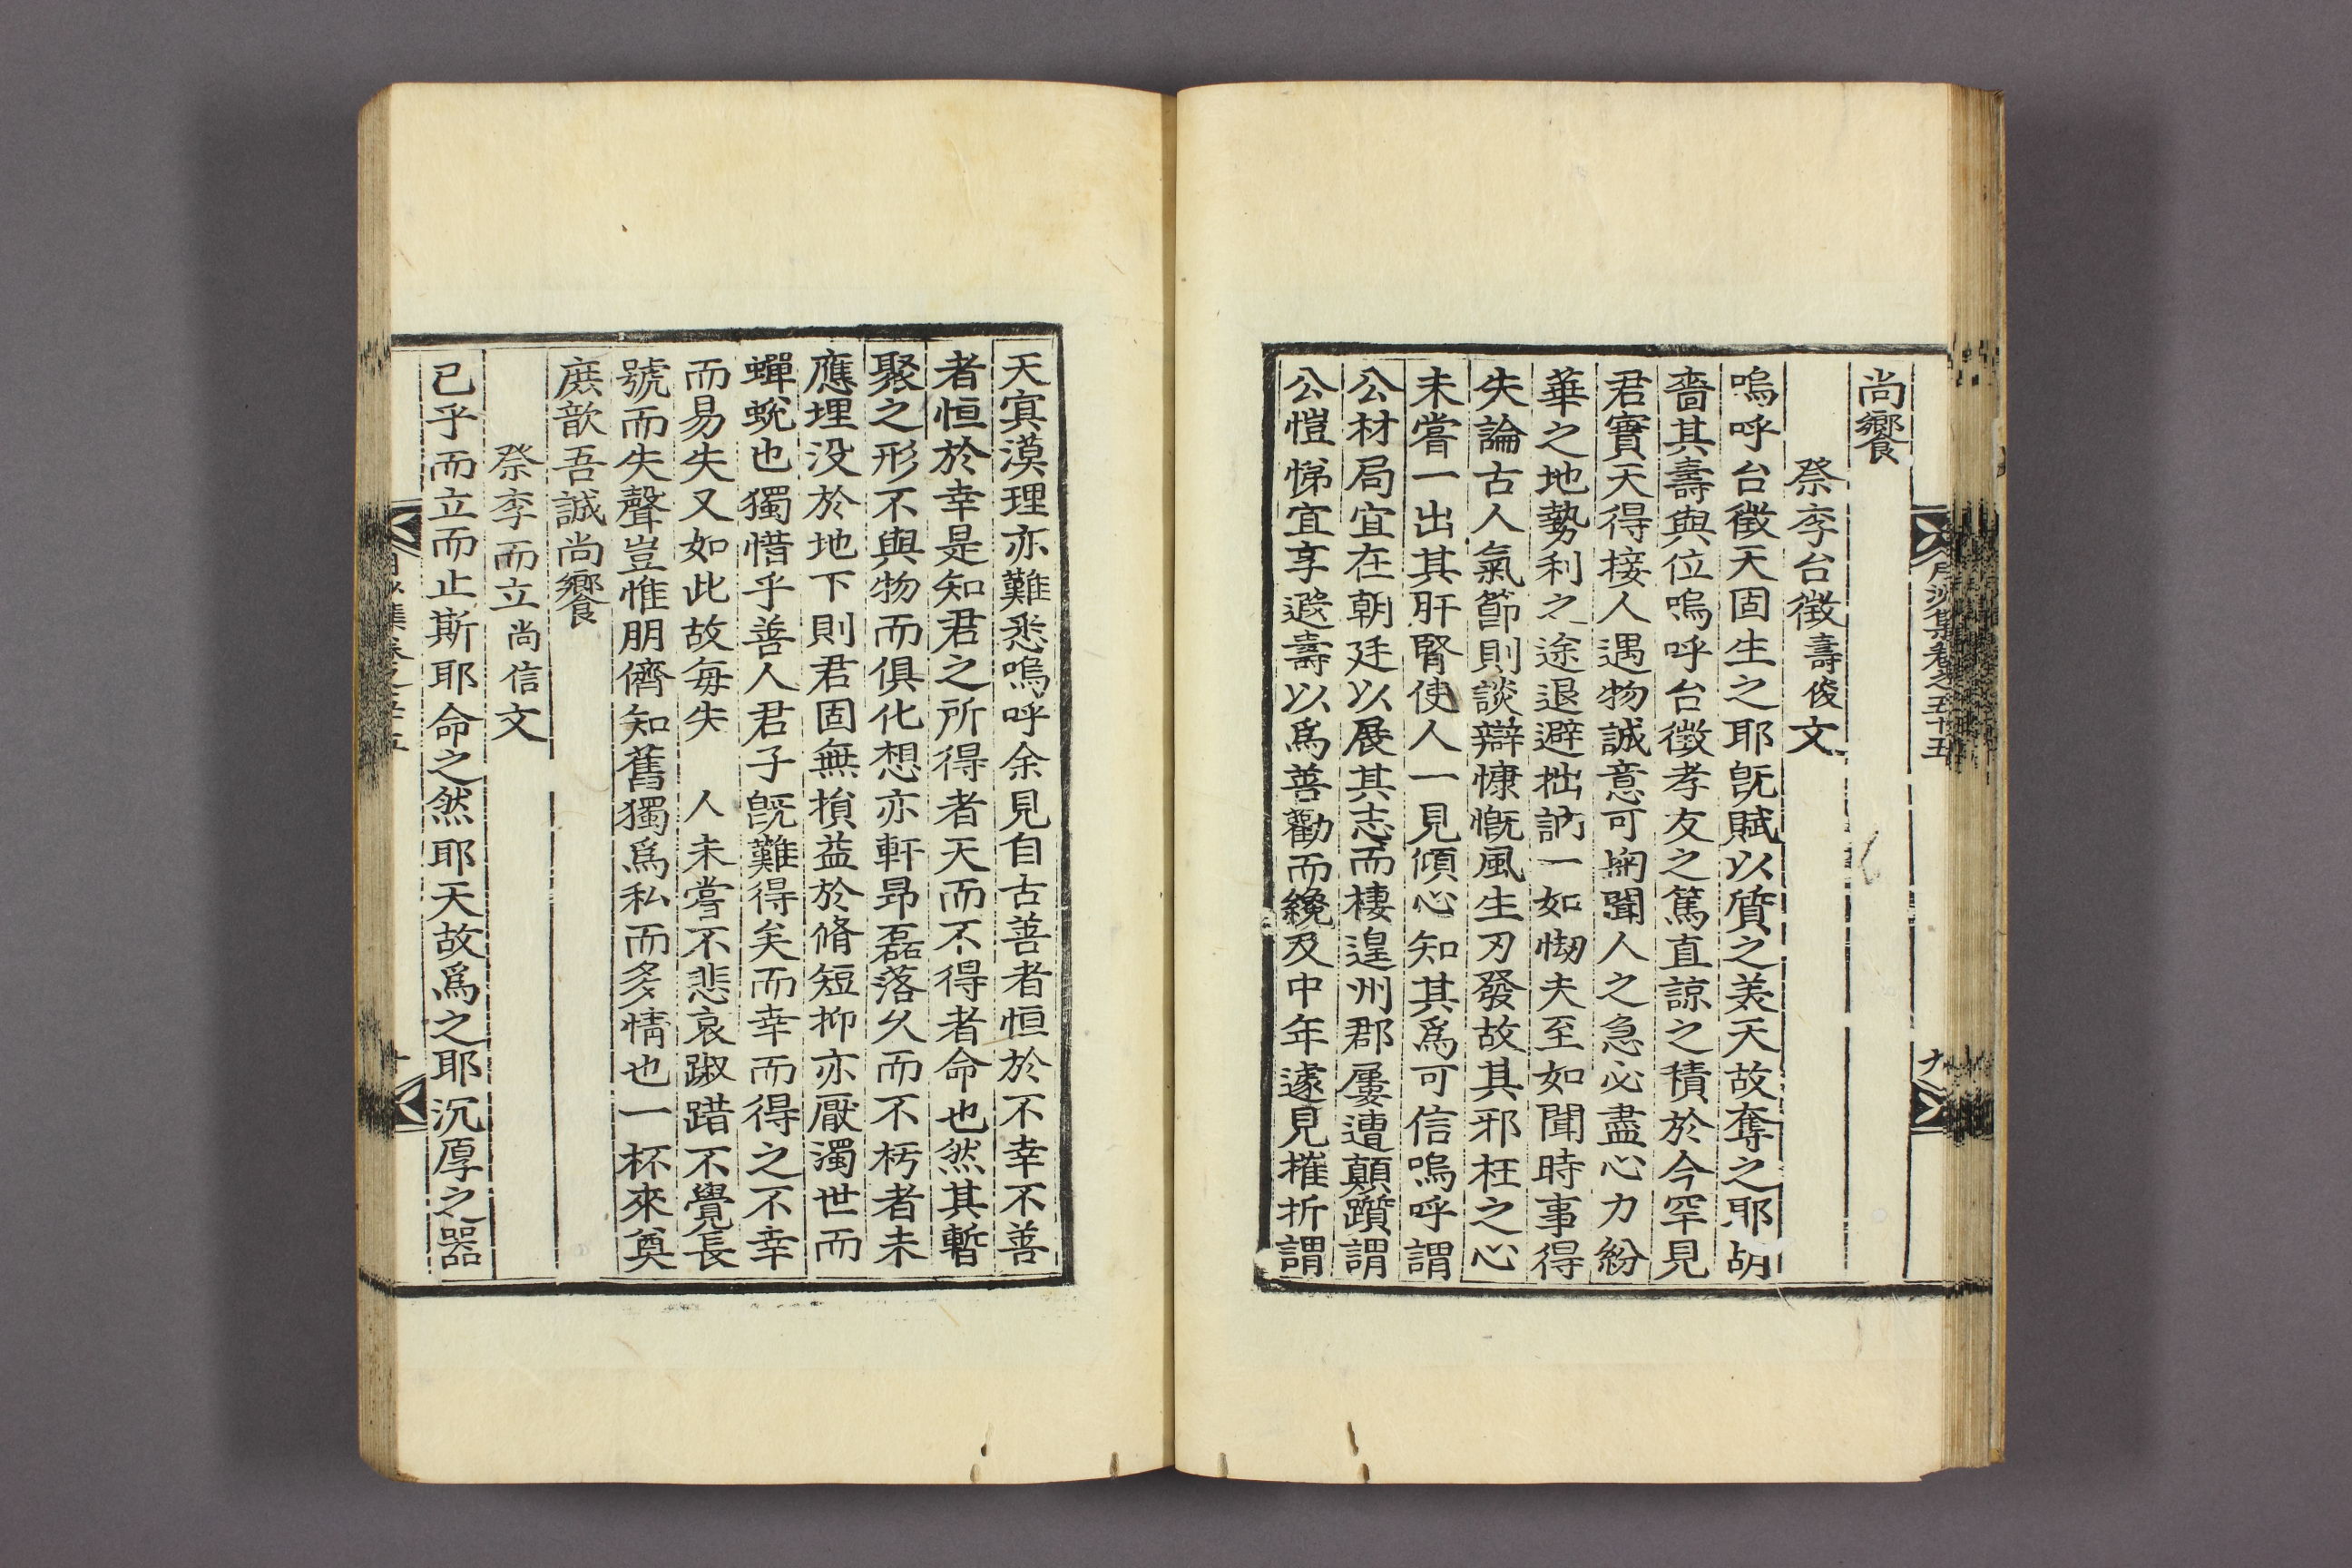 月沙集卷之五十五
九
尚饗
祭李台徵壽俊文
嗚呼台徵天固生之耶旣賦以質之美天故奪之耶胡
嗇其壽與位嗚呼台徵孝友之篤直諒之積於今罕見
君實天得接人遇物誠意可掬聞人之急必盡心力紛
華之地勢利之途退避拙訥一如㥘夫至如聞時事得
失論古人氣節則談辯慷慨風生刃發故其邪枉之心
未嘗一出其肝腎使人一見傾心知其爲可信嗚呼謂
公材局宜在朝廷以展其志而棲遑州郡屢遭顚躓謂
公愷悌宜享遐壽以爲善勸而纔及中年遽見摧折謂
天寘漠理亦難悉嗚呼余見自古善者恒於不幸不善
者恒於幸是知君之所得者天而不得者命也然其暫
聚之形不與物而俱化想亦軒昂磊落久而不朽者未
應埋没於地下則君固無損益於脩短抑亦厭濁世而
蟬蛻也獨惜乎善人君子旣難得矣而幸而得之不幸
而易失又如此故每失 人未嘗不悲哀踧踖不覺長
號而失聲豈惟朋儕知舊獨爲私而多情也一杯來奠
庶歆吾誠尚饗
祭李而立尚信文
已乎而立而止斯耶命之然耶天故爲之耶沉厚之器
十